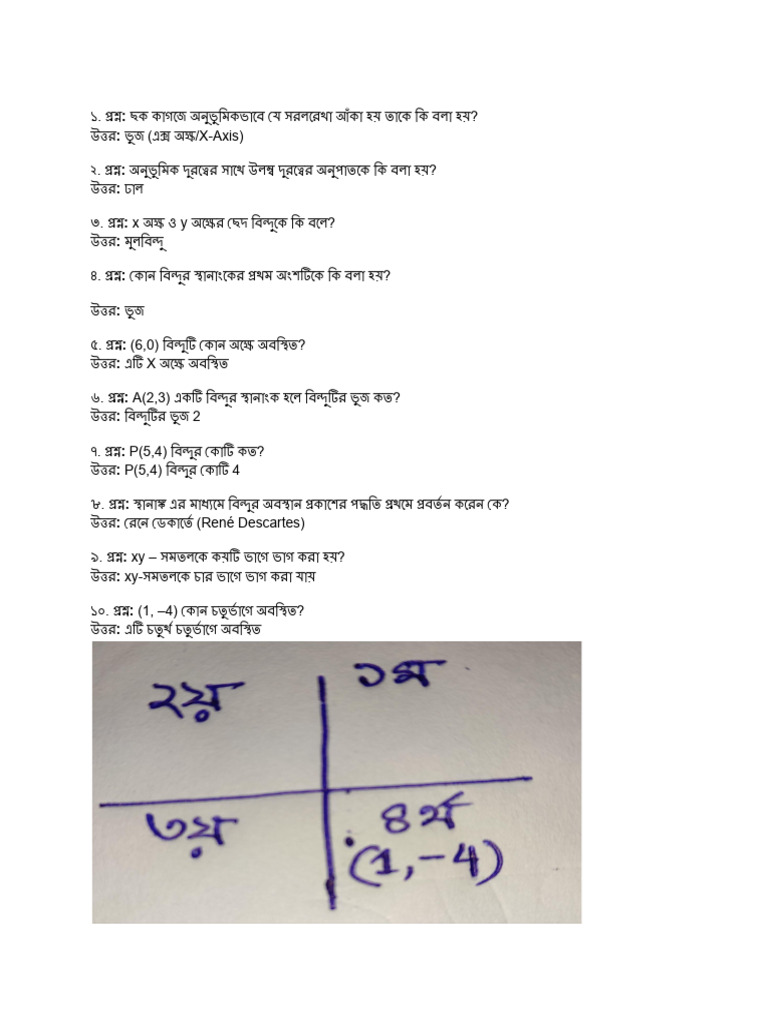 ১. প্রশ্ন: ছক কাগজে অনুভূমিকভাবে যে সরলরেখা আঁকা হয় তাকে কি বলা হয়?
উত্তর: ভূজ (এক্স অক্ষ/X-Axis)
২. প্রশ্ন: অনুভূমিক দূরত্বের সাথে উলম্ব দূরত্বের অনুপাতকে কি বলা হয়?
উত্তর: ঢাল
৩. প্রশ্ন: x অক্ষ ও y অক্ষের ছেদ বিন্দুকে কি বলে?
উত্তর: মূলবিন্দু
৪. প্রশ্ন: কোন বিন্দুর স্থানাংকের প্রথম অংশটিকে কি বলা হয়?
উত্তর: ভূজ
৫. প্রশ্ন: (6,0) বিন্দুটি কোন অক্ষে অবস্থিত?
উত্তর: এটি X অক্ষে অবস্থিত
৬. প্রশ্ন: A(2,3) একটি বিন্দুর স্থানাংক হলে বিন্দুটির ভূজ কত?
উত্তর: বিন্দুটির ভূজ 2
৭. প্রশ্ন: P(5,4) বিন্দুর কোটি কত?
উত্তর: P(5,4) বিন্দুর কোটি 4
৮. প্রশ্ন: স্থানাঙ্ক এর মাধ্যমে বিন্দুর অবস্থান প্রকাশের পদ্ধতি প্রথমে প্রবর্তন করেন কে?
উত্তর: রেনে ডেকার্তে (René Descartes)
৯. প্রশ্ন: xy – সমতলকে কয়টি ভাগে ভাগ করা হয়?
উত্তর: xy-সমতলকে চার ভাগে ভাগ করা যায়
১০. প্রশ্ন: (1, –4) কোন চতুর্ভাগে অবস্থিত?
উত্তর: এটি চতুর্থ চতুর্ভাগে অবস্থিত
২য় ১ম
৩য় ৪র্থ
(1,-4)